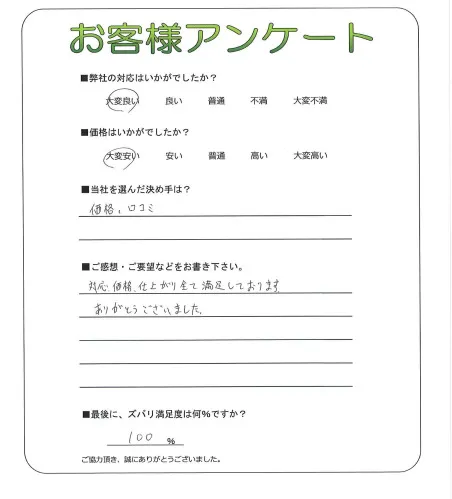 お客様アンケート
■弊社の対応はいかがでしたか?
大変良い 良い 普通 不満 大変不満
■価格はいかがでしたか?
大変安い 安い 普通 高い 大変高い
■当社を選んだ決め手は?
価格、口コミ
■ご感想・ご要望などをお書き下さい。
対応、価格、仕上がり全て満足しております
ありがとうございました。
■最後に、ズバリ満足度は何%ですか?
100 %
ご協力頂き、誠にありがとうございました。